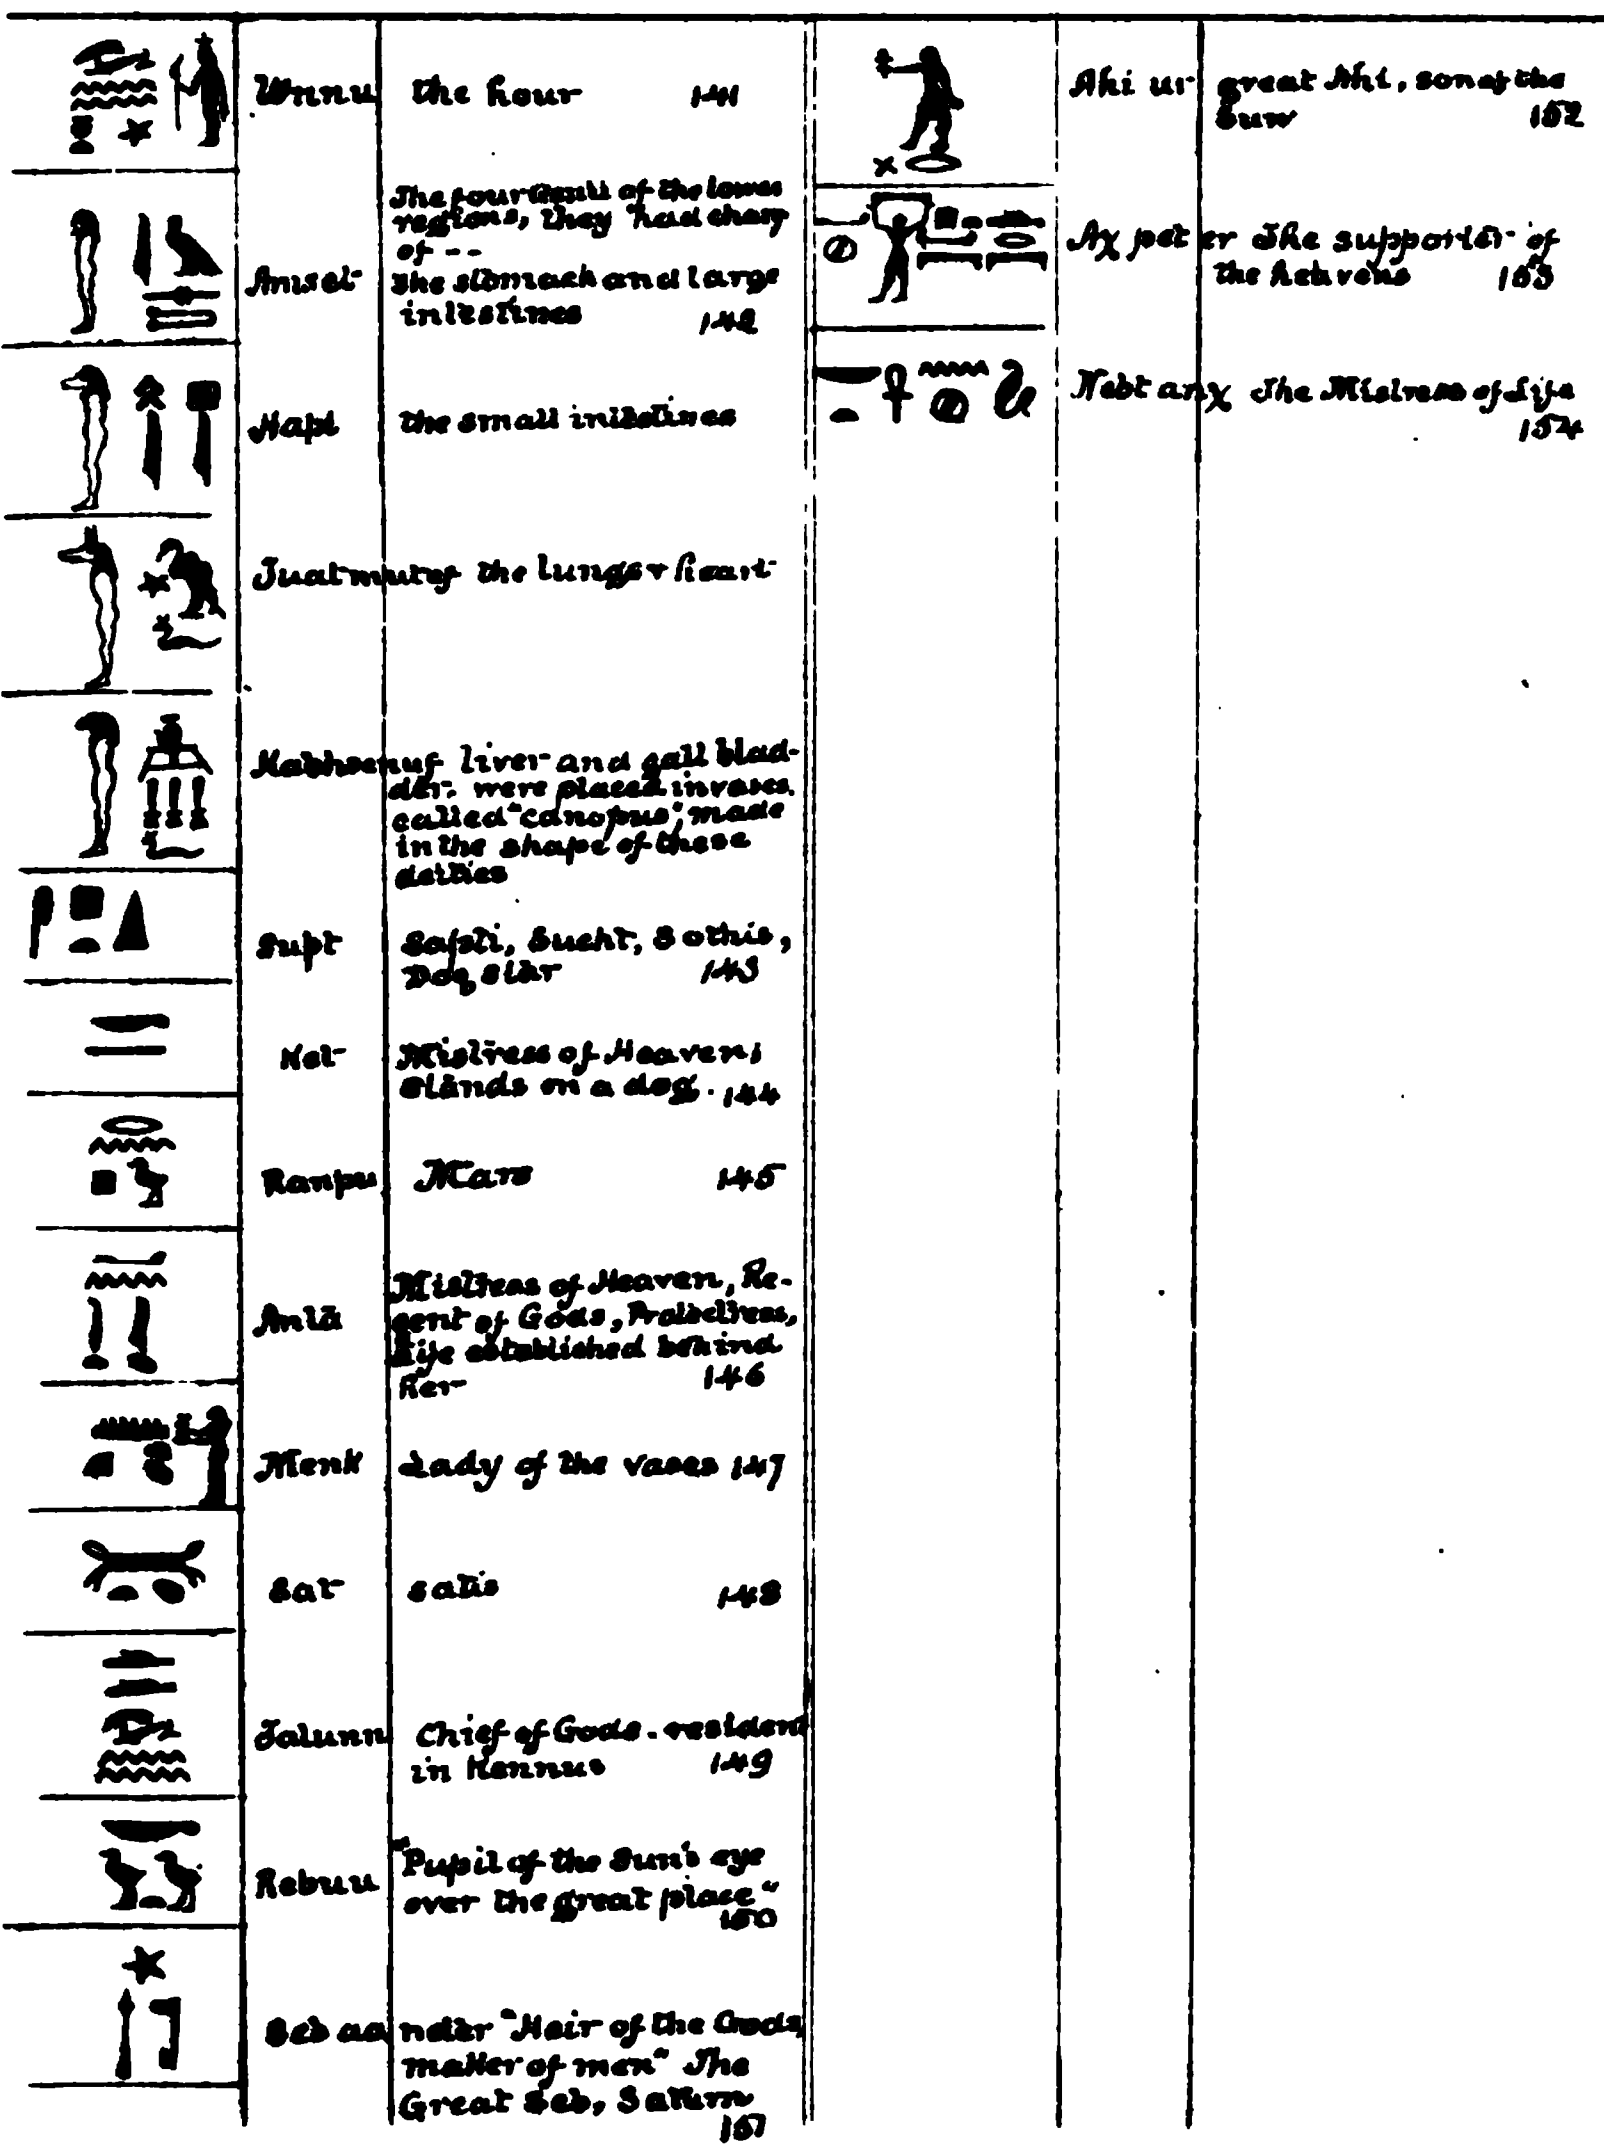 Unnu the hour 141
The four Genii of the lower
regions, they had charge
of --
Amset the stomach and large
intestines 142
Hapi the small intestines
Tuatmutef the lungs & heart
Kabhsenuf liver and gall blad-
der. were placed in vases
called "canopus", made
in the shape of these
deities
Supt Sapti, Sucht, Sothis,
Dog star 143
Mistress of Heaven,
stands on a dog. 144
Ranpu Mars 145
Antā Mistress of Heaven, Re-
gent of Gods, Protectress,
Life established behind
her 146
Menk Lady of the vases 147
Sat satis 148
Tatunn Chief of Gods. resident
in Kennus 149
Rebuu "Pupil of the Sun's eye
over the great place" 150
Seb aa nuter "Heir of the Gods,
maker of men" The
Great Seb, Saturn
151
Ahi ur great Ahi, son of the
Sun 152
Aχ pet er The supporter of
the heavens 153
Nebt anχ The Mistress of Life
154